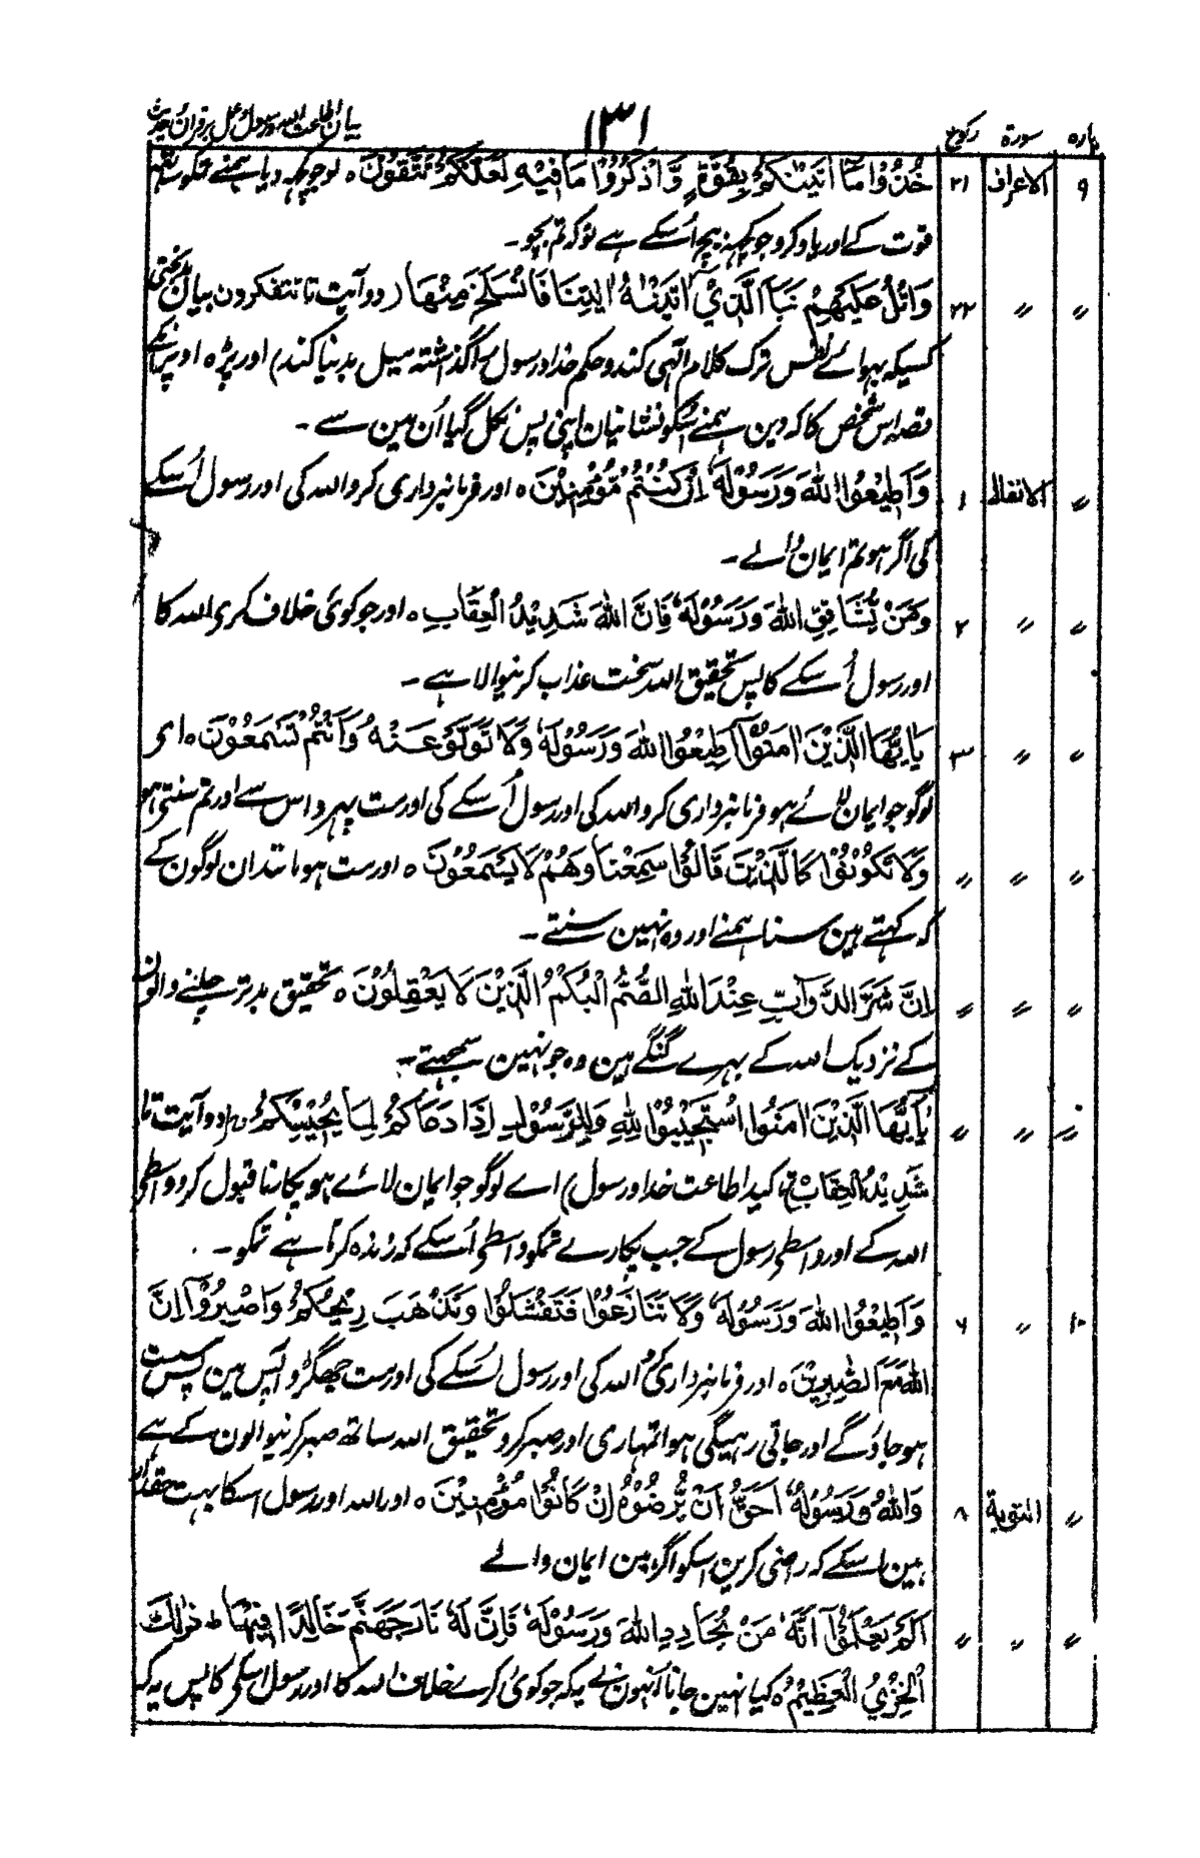 پارہ سورۃ رکوع ۱۳۱ بیان اطاعت اللہ و رسول و عمل بر قرآن و حدیث
۹ الاعراف ۲۱ خُذُوْا مَآ اٰتَيْنٰكُمْ بِقُوَّةٍ وَّاذْكُرُوْا مَا فِيْهِ لَعَلَّكُمْ تَتَّقُوْنَ ہ لو جو کچھ دیا ہمنے تمکو ساتھ
قوت کے اور یاد کرو جو کچھ بیچ اُسکے ہے تو کہ تم بچو۔
〃 〃 ۲۲ وَاتْلُ عَلَيْهِمْ نَبَاَ الَّذِيْٓ اٰتَيْنٰهُ اٰيٰتِنَا فَانْسَلَخَ مِنْهَا (دو آیت تا تتفکرون بیان بدبختی
کسیکہ بہوائے نفس ترک کلام الٰہی کند و حکم خدا و رسول را گذاشتہ میل بدنیا کند) اور پڑہ اوپر انکے
قصہ اس شخص کا کہ دین ہمنے اسکو نشانیان اپنی پس نکل گیا اُن مین سے ۔
〃 الانفال ۱ وَاَطِيْعُوا اللّٰهَ وَرَسُوْلَهٗٓ اِنْ كُنْتُمْ مُّؤْمِنِيْنَ ہ اور فرمانبرداری کرو اللہ کی اور رسول اُسکے
کی اگر ہو تم ایمان والے ۔
〃 〃 ۲ وَمَنْ يُّشَاقِقِ اللّٰهَ وَرَسُوْلَهٗ فَاِنَّ اللّٰهَ شَدِيْدُ الْعِقَابِ ہ اور جو کوئی خلاف کری اللہ کا
اور رسول اُسکے کا پس تحقیق اللہ سخت عذاب کرنیوالا ہے ۔
〃 〃 ۳ يٰٓاَيُّهَا الَّذِيْنَ اٰمَنُوْٓا اَطِيْعُوا اللّٰهَ وَرَسُوْلَهٗ وَلَا تَوَلَّوْا عَنْهُ وَاَنْتُمْ تَسْمَعُوْنَ ہ ای
لوگو جو ایمان لائے ہو فرمانبرداری کرو اللہ کی اور رسول اُسکے کی اور مت پہرو اس سے اور تم سنتی ہو
〃 〃 〃 وَلَا تَكُوْنُوْا كَالَّذِيْنَ قَالُوْا سَمِعْنَا وَهُمْ لَا يَسْمَعُوْنَ ہ اور مت ہو مانند ان لوگون کے
کہ کہتے ہین سنا ہمنے اور وہ نہین سنتے ۔
〃 〃 〃 اِنَّ شَرَّ الدَّوَآبِّ عِنْدَ اللّٰهِ الصُّمُّ الْبُكْمُ الَّذِيْنَ لَا يَعْقِلُوْنَ ہ تحقیق بدتر چلنے والون
کے نزدیک اللہ کے بہرے گنگے ہین وہ جو نہین سمجہتے ۔
〃 〃 〃 يٰٓاَيُّهَا الَّذِيْنَ اٰمَنُوا اسْتَجِيْبُوْا لِلّٰهِ وَلِلرَّسُوْلِ اِذَا دَعَاكُمْ لِمَا يُحْيِيْكُمْ (دو آیت تا
شَدِيْدُ الْعِقَابِ تاکید اطاعت خدا و رسول) اے لوگو جو ایمان لائے ہو پکارنا قبول کرو واسطی
اللہ کے اور واسطی رسول کے جب پکارے تمکو واسطی اُسکے کہ زندہ کرتا ہے تمکو ۔
۱۰ 〃 ۶ وَاَطِيْعُوا اللّٰهَ وَرَسُوْلَهٗ وَلَا تَنَازَعُوْا فَتَفْشَلُوْا وَتَذْهَبَ رِيْحُكُمْ وَاصْبِرُوْٓا اِنَّ
اللّٰهَ مَعَ الصّٰبِرِيْنَ ہ اور فرمانبرداری کرو اللہ کی اور رسول اُسکے کی اور مت جھگڑو آپس مین پس سست
ہو جاؤگے اور جاتی رہیگی ہوا تمہاری اور صبر کرو تحقیق اللہ ساتھ صبر کرنیوالون کے ہے
〃 التوبة ۸ وَاللّٰهُ وَرَسُوْلُهٗٓ اَحَقُّ اَنْ يُّرْضُوْهُ اِنْ كَانُوْا مُؤْمِنِيْنَ ہ اور اللہ اور رسول اسکا بہت حقدار
ہین اسکے کہ راضی کرین اسکو اگر ہین ایمان والے
〃 〃 〃 اَلَمْ يَعْلَمُوْٓا اَنَّهٗ مَنْ يُّحَادِدِ اللّٰهَ وَرَسُوْلَهٗ فَاَنَّ لَهٗ نَارَ جَهَنَّمَ خَالِدًا فِيْهَا ط ذٰلِكَ
الْخِزْيُ الْعَظِيْمُ ہ کیا نہین جانا اُنہون نے یہ کہ جو کوئی کرے خلاف اللہ کا اور رسول اسکی کا پس یہ کہ